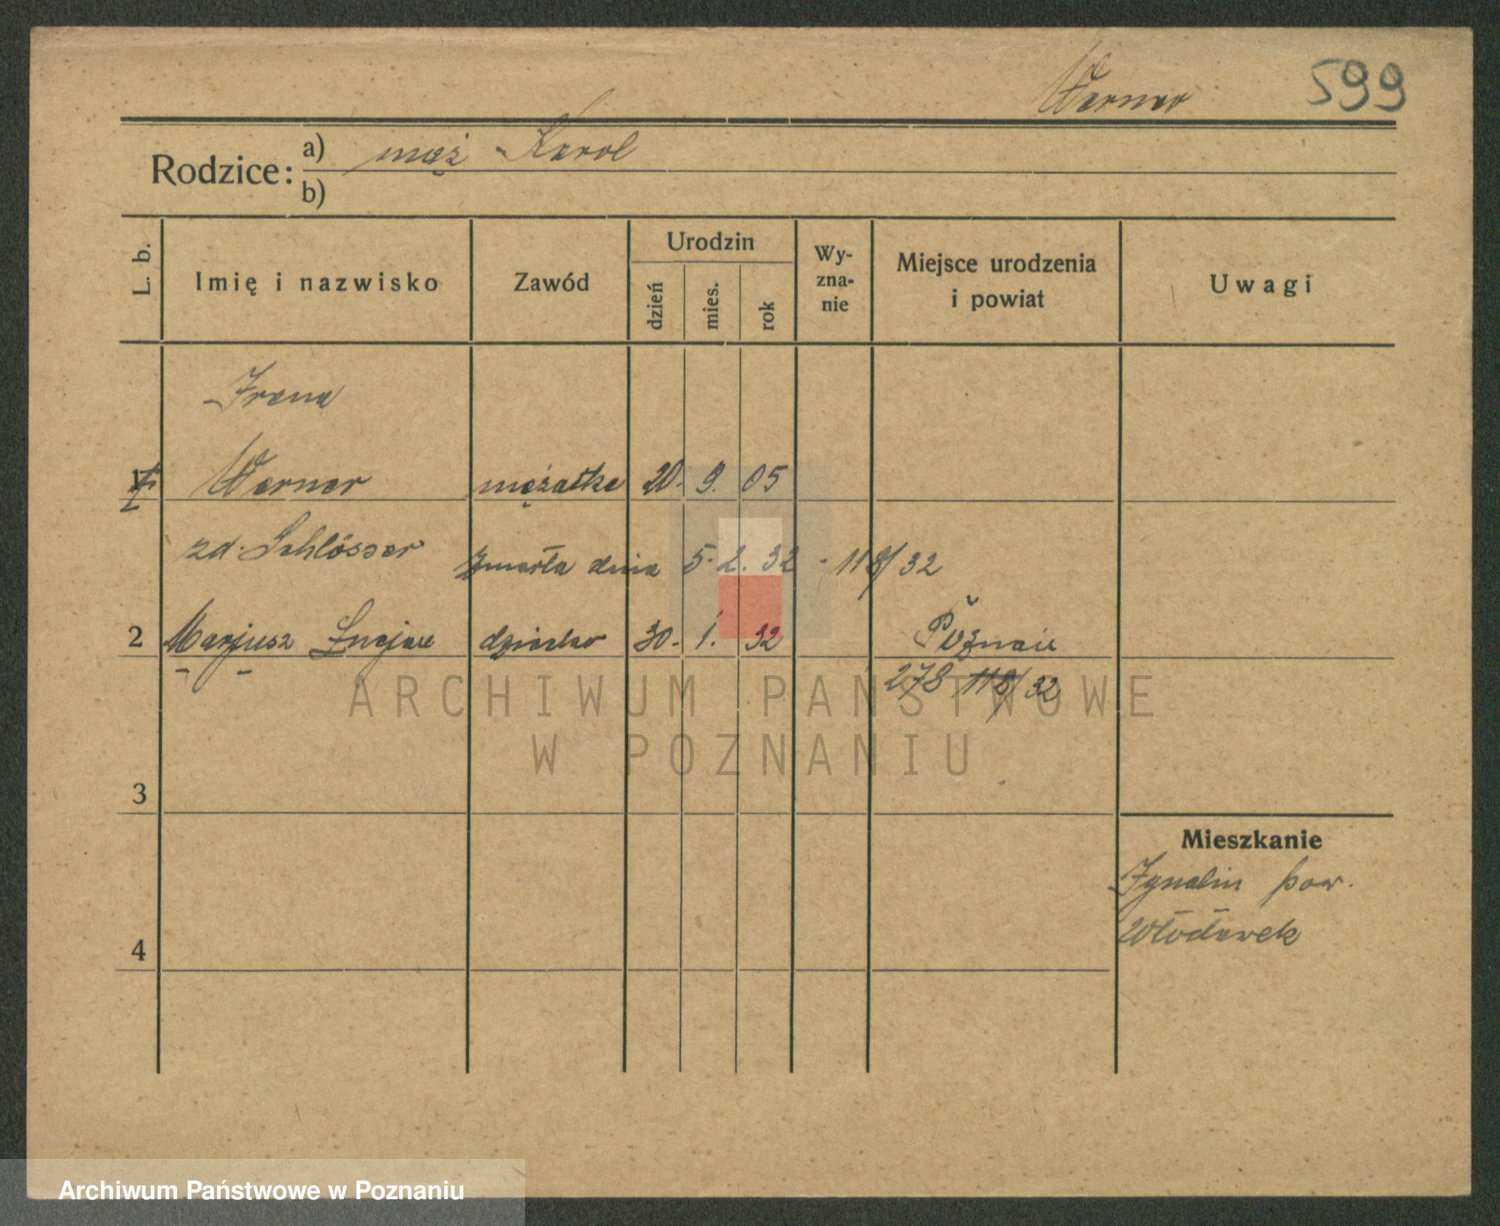 Werner 599
Rodzice: a) mąż Karol
b)
L. b. Imię i nazwisko Zawód Urodzin dzień mies. rok Wy-zna-nie Miejsce urodzenia i powiat Uwagi
Irena
1 Werner mężatka 20. 9. 05
zd. Schlösser zmarła dnia 5. 2. 32 - 118/32
2 Marjusz dziecko 30. 1. 32 Poznań
278 118/32
ARCHIWUM PAŃSTWOWE
W POZNANIU
3
Mieszkanie
pow.
4
Archiwum Państwowe w Poznaniu